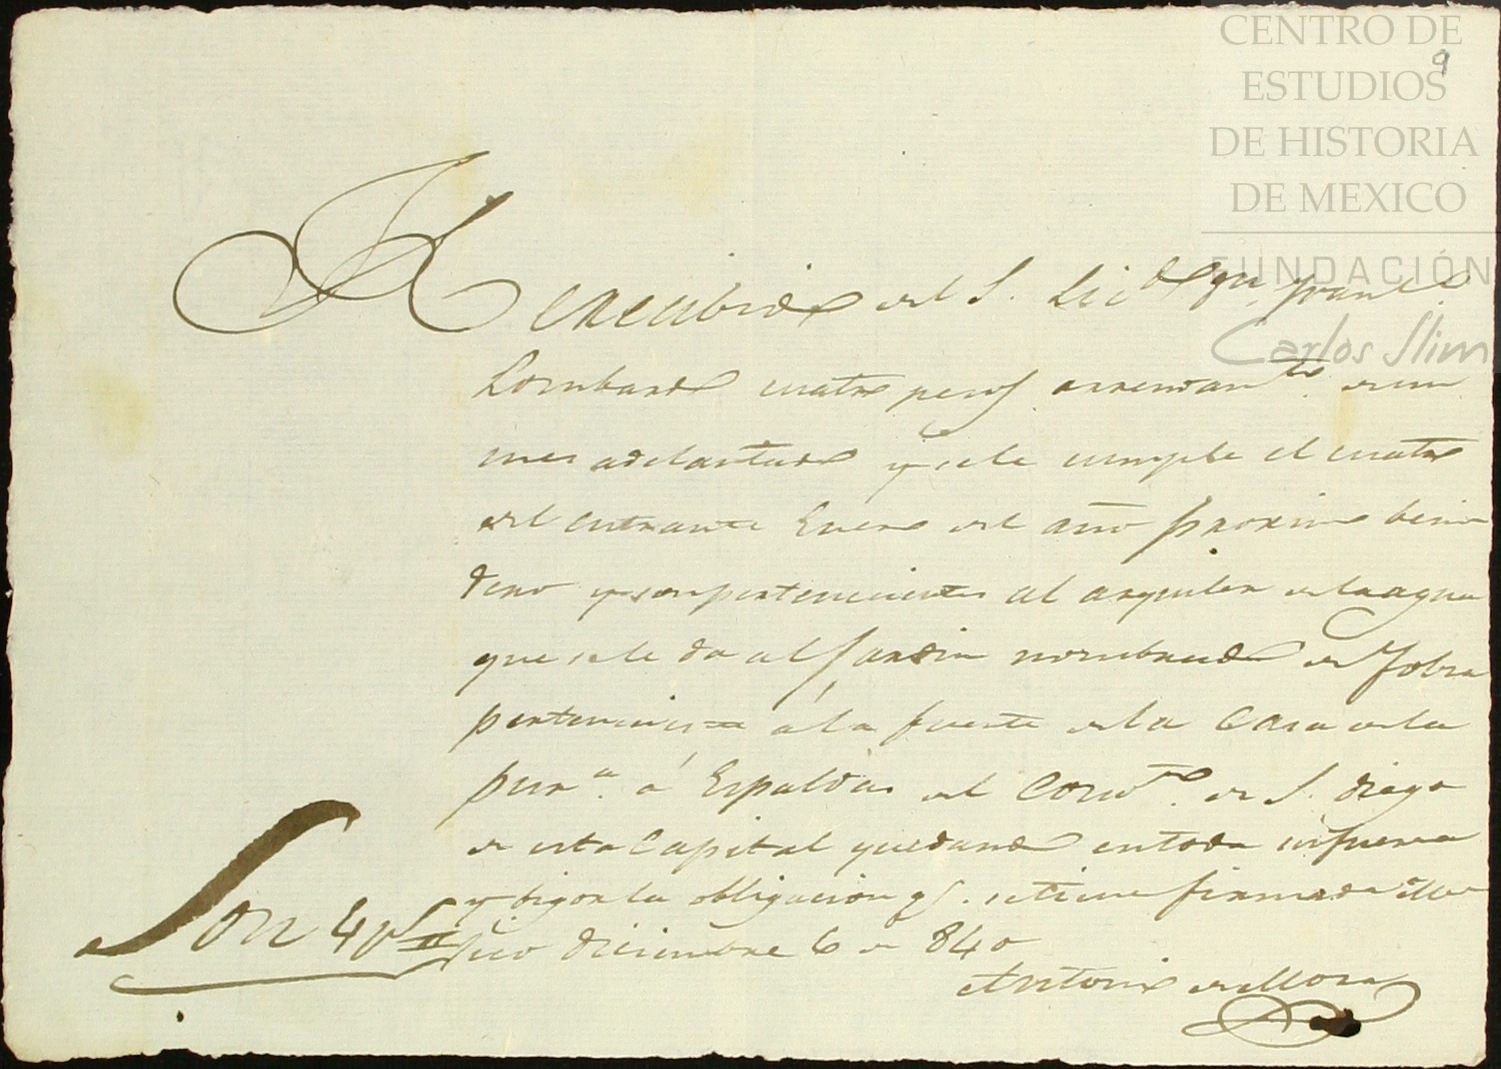 CENTRO DE
ESTUDIOS
DE HISTORIA
DE MEXICO
FUNDACIÓN
Carlos Slim
9
He recibido del S. Lic.do Juan
Lombardo cuatro pesos arrendam.to de un
mes adelantado y se le cumple el cuatro
del entrante Enero del año proximo beni
dero y son pertenecientes al arquiler de la agua
que se le da al Jardin nombrado de
perteneciente á la fuente de la Casa de la
pur.a á Espaldas del Conv.to de S. Diego
de esta Capital quedando en toda su fuerza
y bigor la obligacion q.e se tiene firmada Me
jico diciembre 6 de 840
Son 4 ps
Antonio de Mora